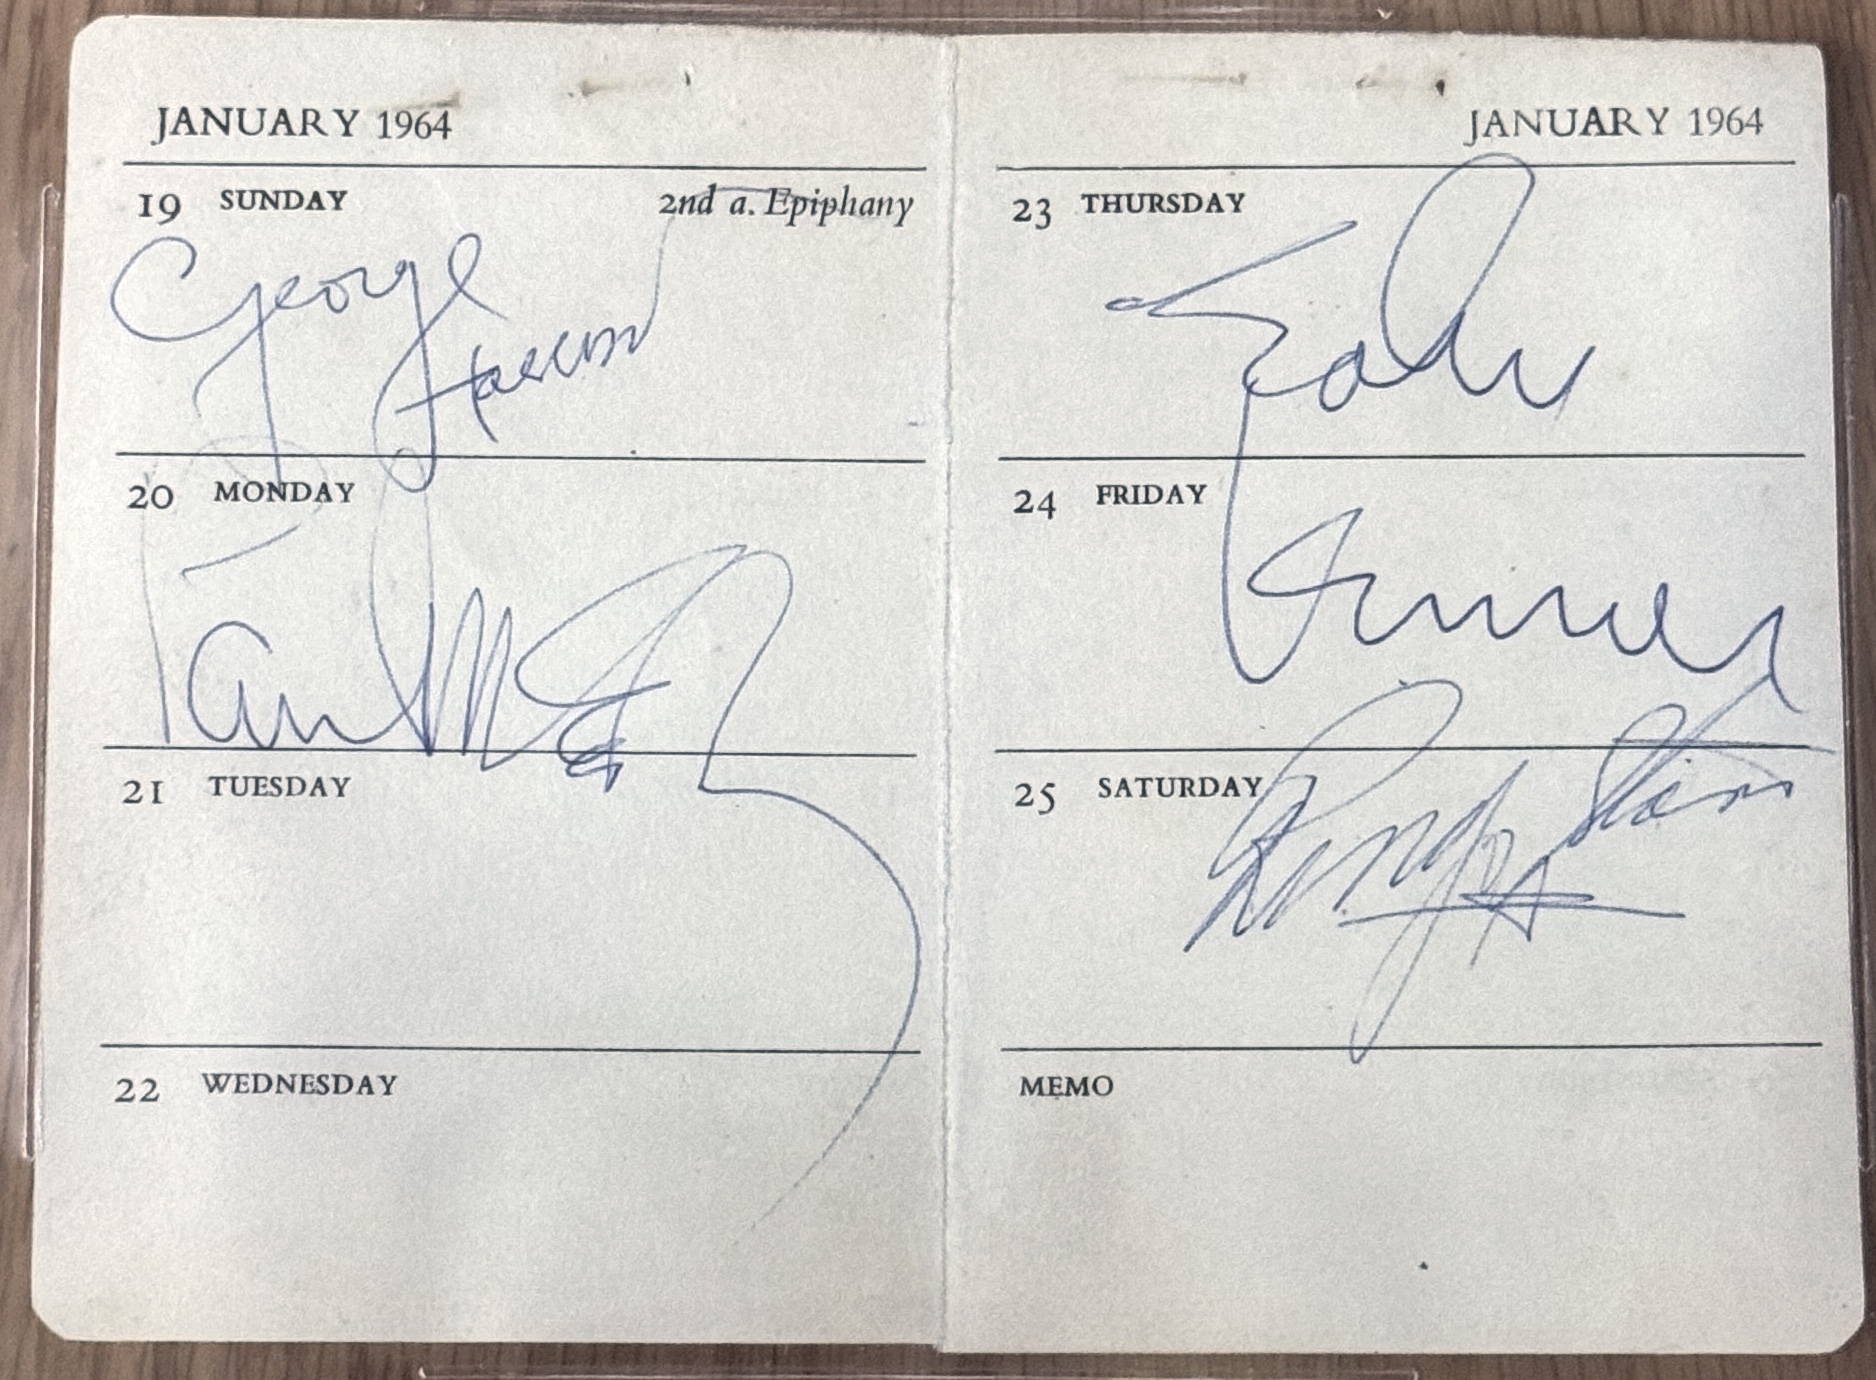 JANUARY 1964
19 SUNDAY 2nd a. Epiphany
George
Harrison
20 MONDAY
Paul McCartney
21 TUESDAY
22 WEDNESDAY
JANUARY 1964
23 THURSDAY
John
24 FRIDAY
Lennon
25 SATURDAY
Ringo Starr
MEMO